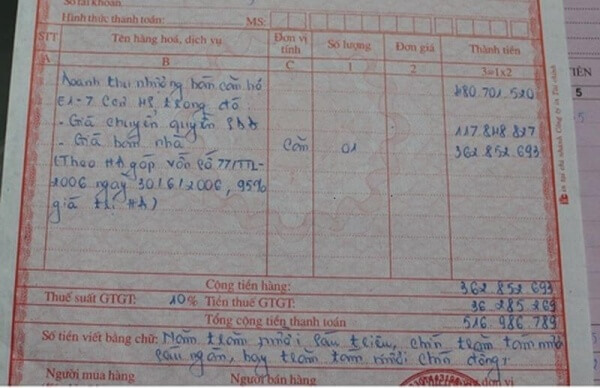 Số tài khoản:
Hình thức thanh toán: MS:
STT Tên hàng hoá, dịch vụ Đơn vị tính Số lượng Đơn giá Thành tiền
A B C 1 2 3=1x2
Doanh thu nhượng bán căn hộ 480.701.520
E1-7 , trong đó:
- Giá chuyển quyền 117.848.827
- Giá bán nhà Căn 01 362.852.693
(Theo HĐ góp vốn số 77/TTL-
2006 ngày 30/6/2006, 95%
giá trị HĐ)
Cộng tiền hàng: 362 852 693
Thuế suất GTGT: 10% Tiền thuế GTGT: 36 285 269
Tổng cộng tiền thanh toán 516 986 789
Số tiền viết bằng chữ: Năm trăm mười sáu triệu, chín trăm tám mươi
sáu ngàn, bảy trăm tám mươi chín đồng
Người mua hàng Người bán hàng
TIỀN
5